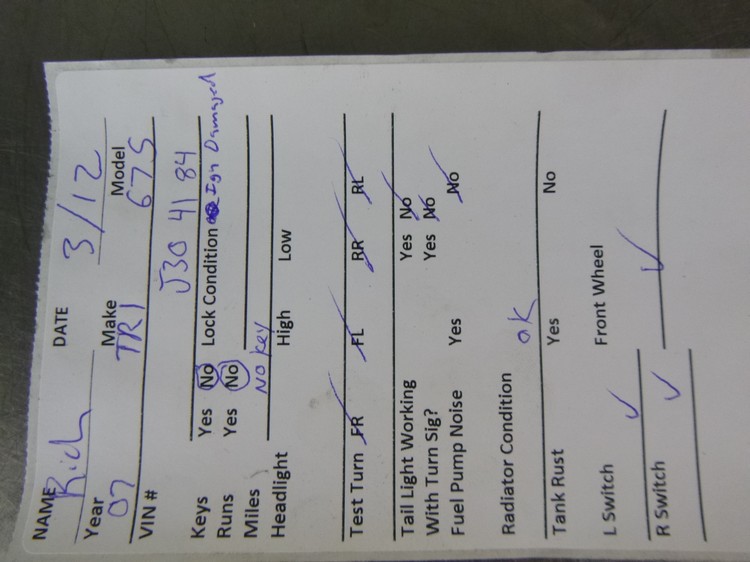 NAME Rich DATE 3/12
Year 07 Make TRI Model 675
VIN # J30 4184
Keys Yes No Lock Condition Ign Damaged
Runs Yes No
Miles No key
Headlight High Low
Test Turn FR FL RR RL
Tail Light Working Yes No
With Turn Sig? Yes No
Fuel Pump Noise Yes No
Radiator Condition ok
Tank Rust Yes No
L Switch ✓ Front Wheel ✓
R Switch ✓